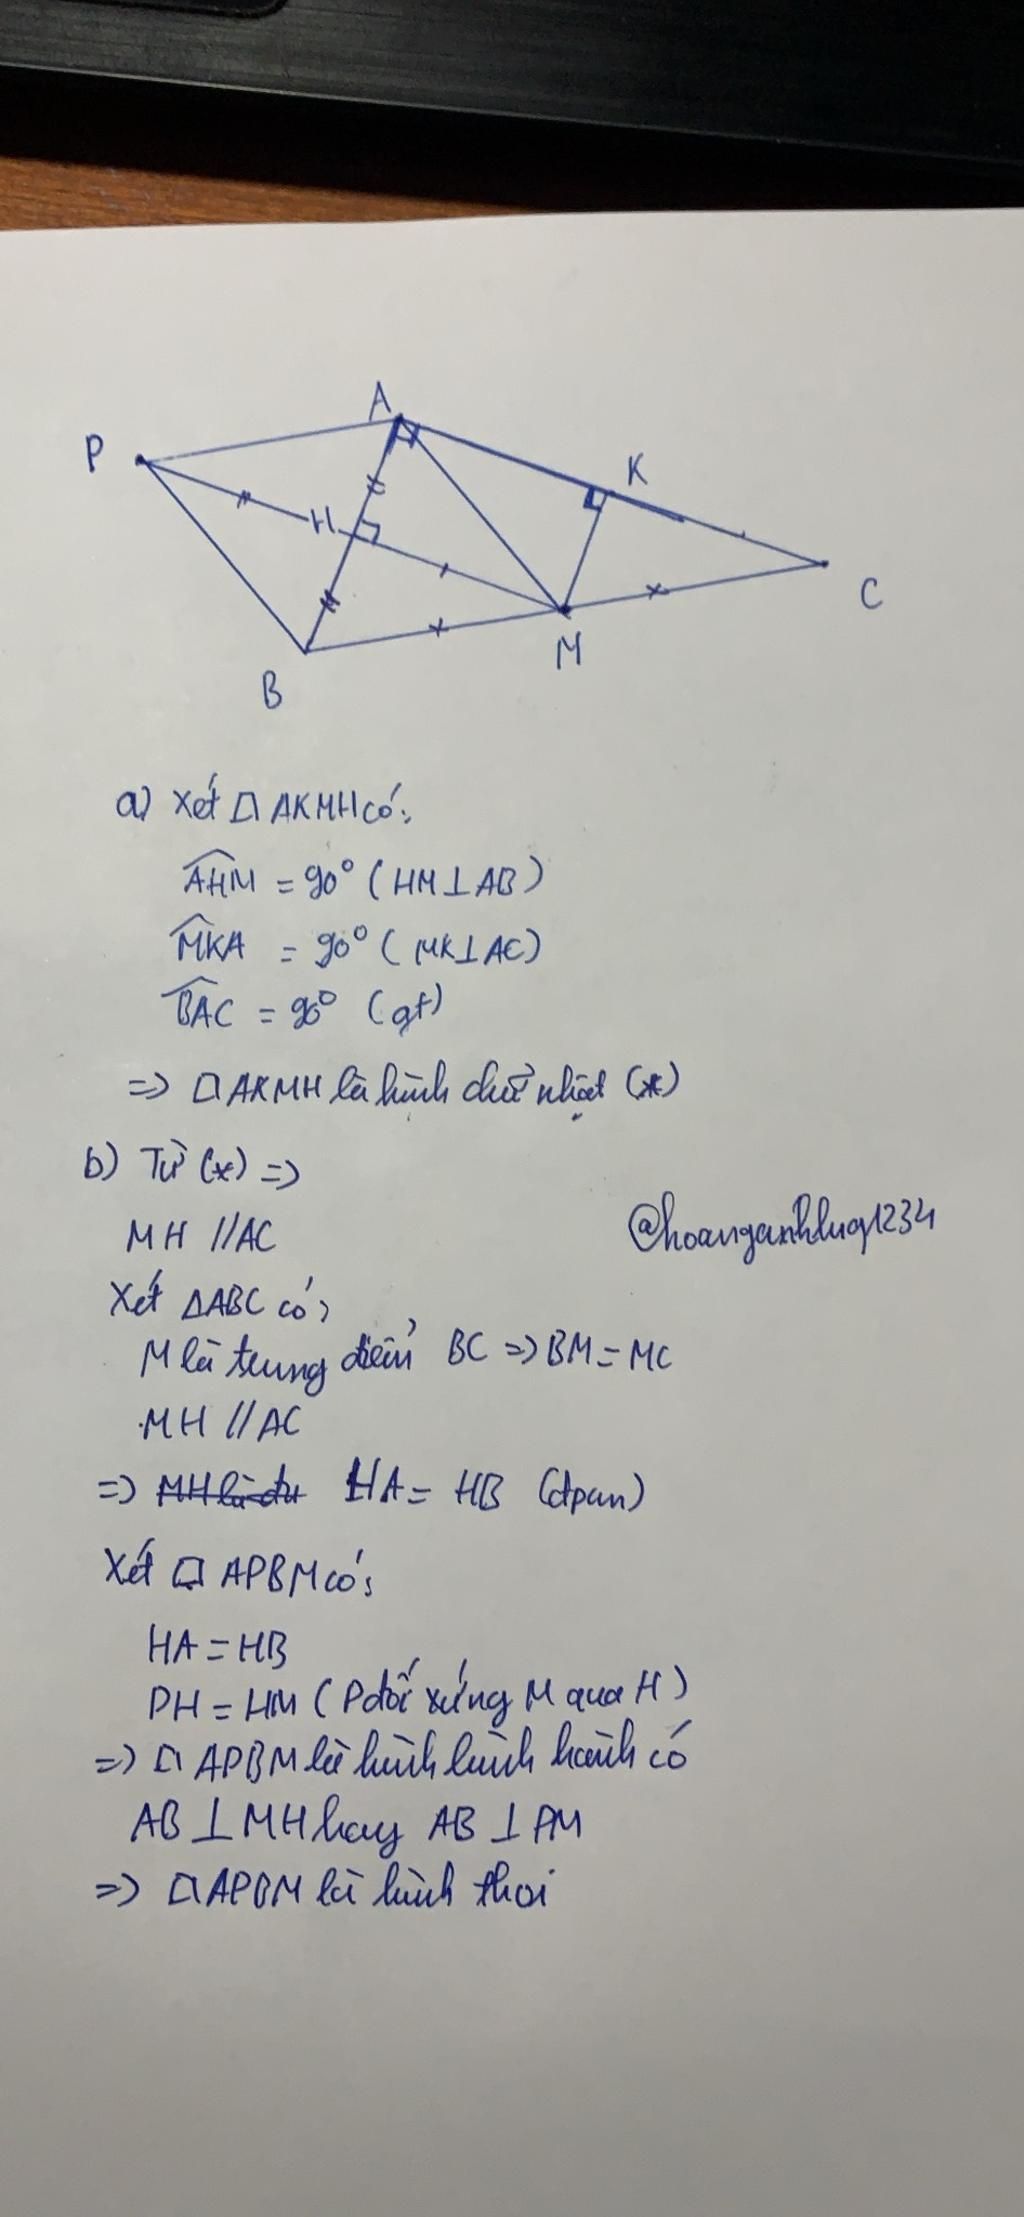 A
P
K
H
C
M
B
a) Xét □ AKMH có:
AHM = 90° (HM ⊥ AB)
MKA = 90° (MK ⊥ AC)
BAC = 90° (gt)
=> □ AKMH là hình chữ nhật (*)
b) Từ (*) =>
MH // AC
@hoanganhluq1234
Xét ΔABC có:
M là trung điểm BC => BM = MC
MH // AC
=> MH là đư HA = HB (đpcm)
Xét □ APBM có:
HA = HB
PH = HM (P đối xứng M qua H)
=> □ APBM là hình bình hành có
AB ⊥ MH hay AB ⊥ PM
=> □ APBM là hình thoi